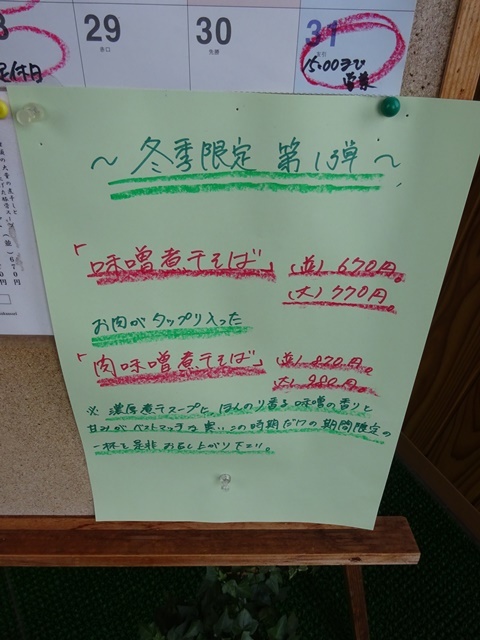 29
30
31
定休日
15:00まで
営業
～冬季限定 第13弾～
「味噌煮干そば」 (並) 670円。
(大) 770円。
お肉がタップリ入った
「肉味噌煮干そば」 (並) 870円。
(大) 980円。
※ 濃厚煮干スープに、ほんのり香る味噌の香りと
甘みがベストマッチな
この時期だけの期間限定の
一杯を是非お召し上がり下さい。